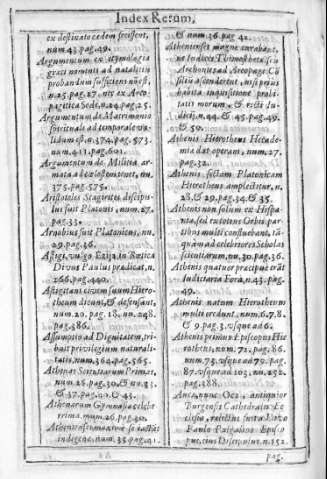 Index Rerum,
ex destinato cædem fecissent,
num. 43. pag. 49.
Argumentum ex etymologia
græci nominis ad natalitia
probandum sufficiens non est,
n. 25. pag. 27. nec ex Areo-
pagitica Sede, n. 24. pag. 25.
Argumentum de Matrimonio
spirituale ad temporale va-
lidum est, n. 374. pag. 573.
num. 411. pag. 601.
Argumentum de Militia ar-
mata ad
375. pag. 575.
Aristoteles Stagirites discipu-
lus fuit Platonis, num. 27.
pag. 33.
Arnobius fuit Platonicus, nu.
29. pag. 36.
Astigi, vulgo Ezija in Bætica
Divus Paulus prædicat, n.
266. pag. 440.
Astigitani civem suum Hiero-
theum dicunt, & defensant,
num. 20. pag. 18. nu. 248.
pag. 386.
Assumptio ad Dignitatem, tri-
buit privilegium naturali-
tatis, num. 364. pag. 565.
Athenas Scientiarum Primæ,
num. 26. pag. 30. & nu. 33.
& 37. pag. 40. & 43.
Athenarum Gymnasia celebe-
rrima, num. 26. pag. 30.
Athenienses
indigenæ, num. 35. pag. 41.
& num. 36. pag. 42.
Athenienses magne curabant,
ne Iudices Thimotheta sive
Archontes ad Areopagi Co-
silia ascenderent, nisi prius
habita inquisitione probi-
tatis morum, & recti Iu-
dicij, n. 44. & 45. pag. 49.
& 50.
Athenis Hierotheus Hiero-
mia dat operam, num. 27.
pag. 32.
Athenis sectam Platonicam
Hierotheus amplectitur, n.
28. & 29. pag. 34. & 35.
Athenis non solum ex Hispa-
nia, sed ex totius Orbis par-
tibus multi confluebant, tã-
quàm ad celebriores Scholas
scientiarum, nu. 30. pag. 36.
Athenis quatuor præcipuè erãt
Iudiciaria Fora, n. 43. pag.
49.
Athenis natum Hierotheum
multi credunt, num. 6. 7. 8.
& 9. pag. 3. vsque ad 6.
Athenis primum Episcopus Hie-
rotheus, num. 72. pag. 86.
num. 73. vsque ad 79. pag.
87. vsque ad 103. nu. 252.
pag. 388.
Auca, nunc Oca, antiquior
Burgensi Cathedralis Ec-
clesia,
Paulo Patigaleno Episco-
pus, eius Discipulus, n. 152.
pag.